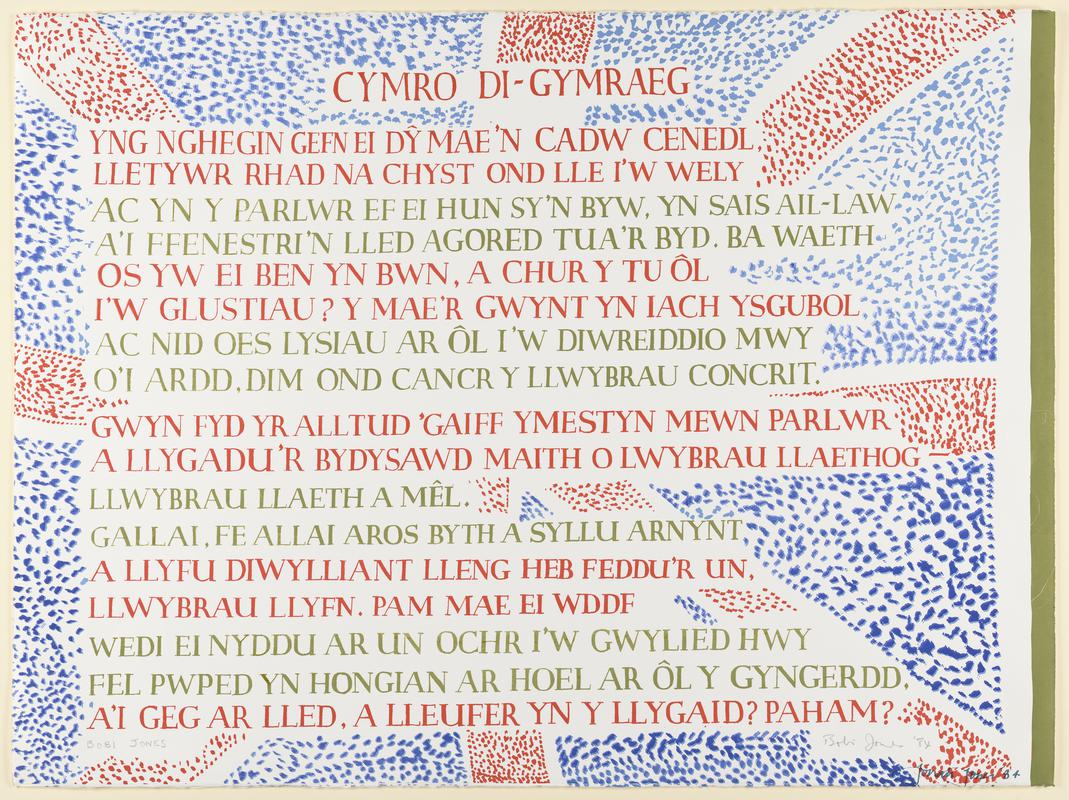 CYMRO DI-GYMRAEG
YNG NGHEGIN GEFN EI DŶ MAE'N CADW CENEDL,
LLETYWR RHAD NA CHYST OND LLE I'W WELY
AC YN Y PARLWR EF EI HUN SY'N BYW, YN SAIS AIL-LAW
A'I FFENESTRI'N LLED AGORED TUA'R BYD. BA WAETH
OS YW EI BEN YN BWN, A CHUR Y TU ÔL
I'W GLUSTIAU? Y MAE'R GWYNT YN IACH YSGUBOL
AC NID OES LYSIAU AR ÔL I'W DIWREIDDIO MWY
O'I ARDD, DIM OND CANCR Y LLWYBRAU CONCRIT.
GWYN FYD YR ALLTUD 'GAIFF YMESTYN MEWN PARLWR
A LLYGADU'R BYDYSAWD MAITH O LWYBRAU LLAETHOG —
LLWYBRAU LLAETH A MÊL.
GALLAI, FE ALLAI AROS BYTH A SYLLU ARNYNT
A LLYFU DIWYLLIANT LLENG HEB FEDDU'R UN,
LLWYBRAU LLYFN. PAM MAE EI WDDF
WEDI EI NYDDU AR UN OCHR I'W GWYLIED HWY
FEL PWPED YN HONGIAN AR HOEL AR ÔL Y GYNGERDD,
A'I GEG AR LLED, A LLEUFER YN Y LLYGAID? PAHAM?
BOBI JONES
Bobi Jones '84
Jonah Jones '84